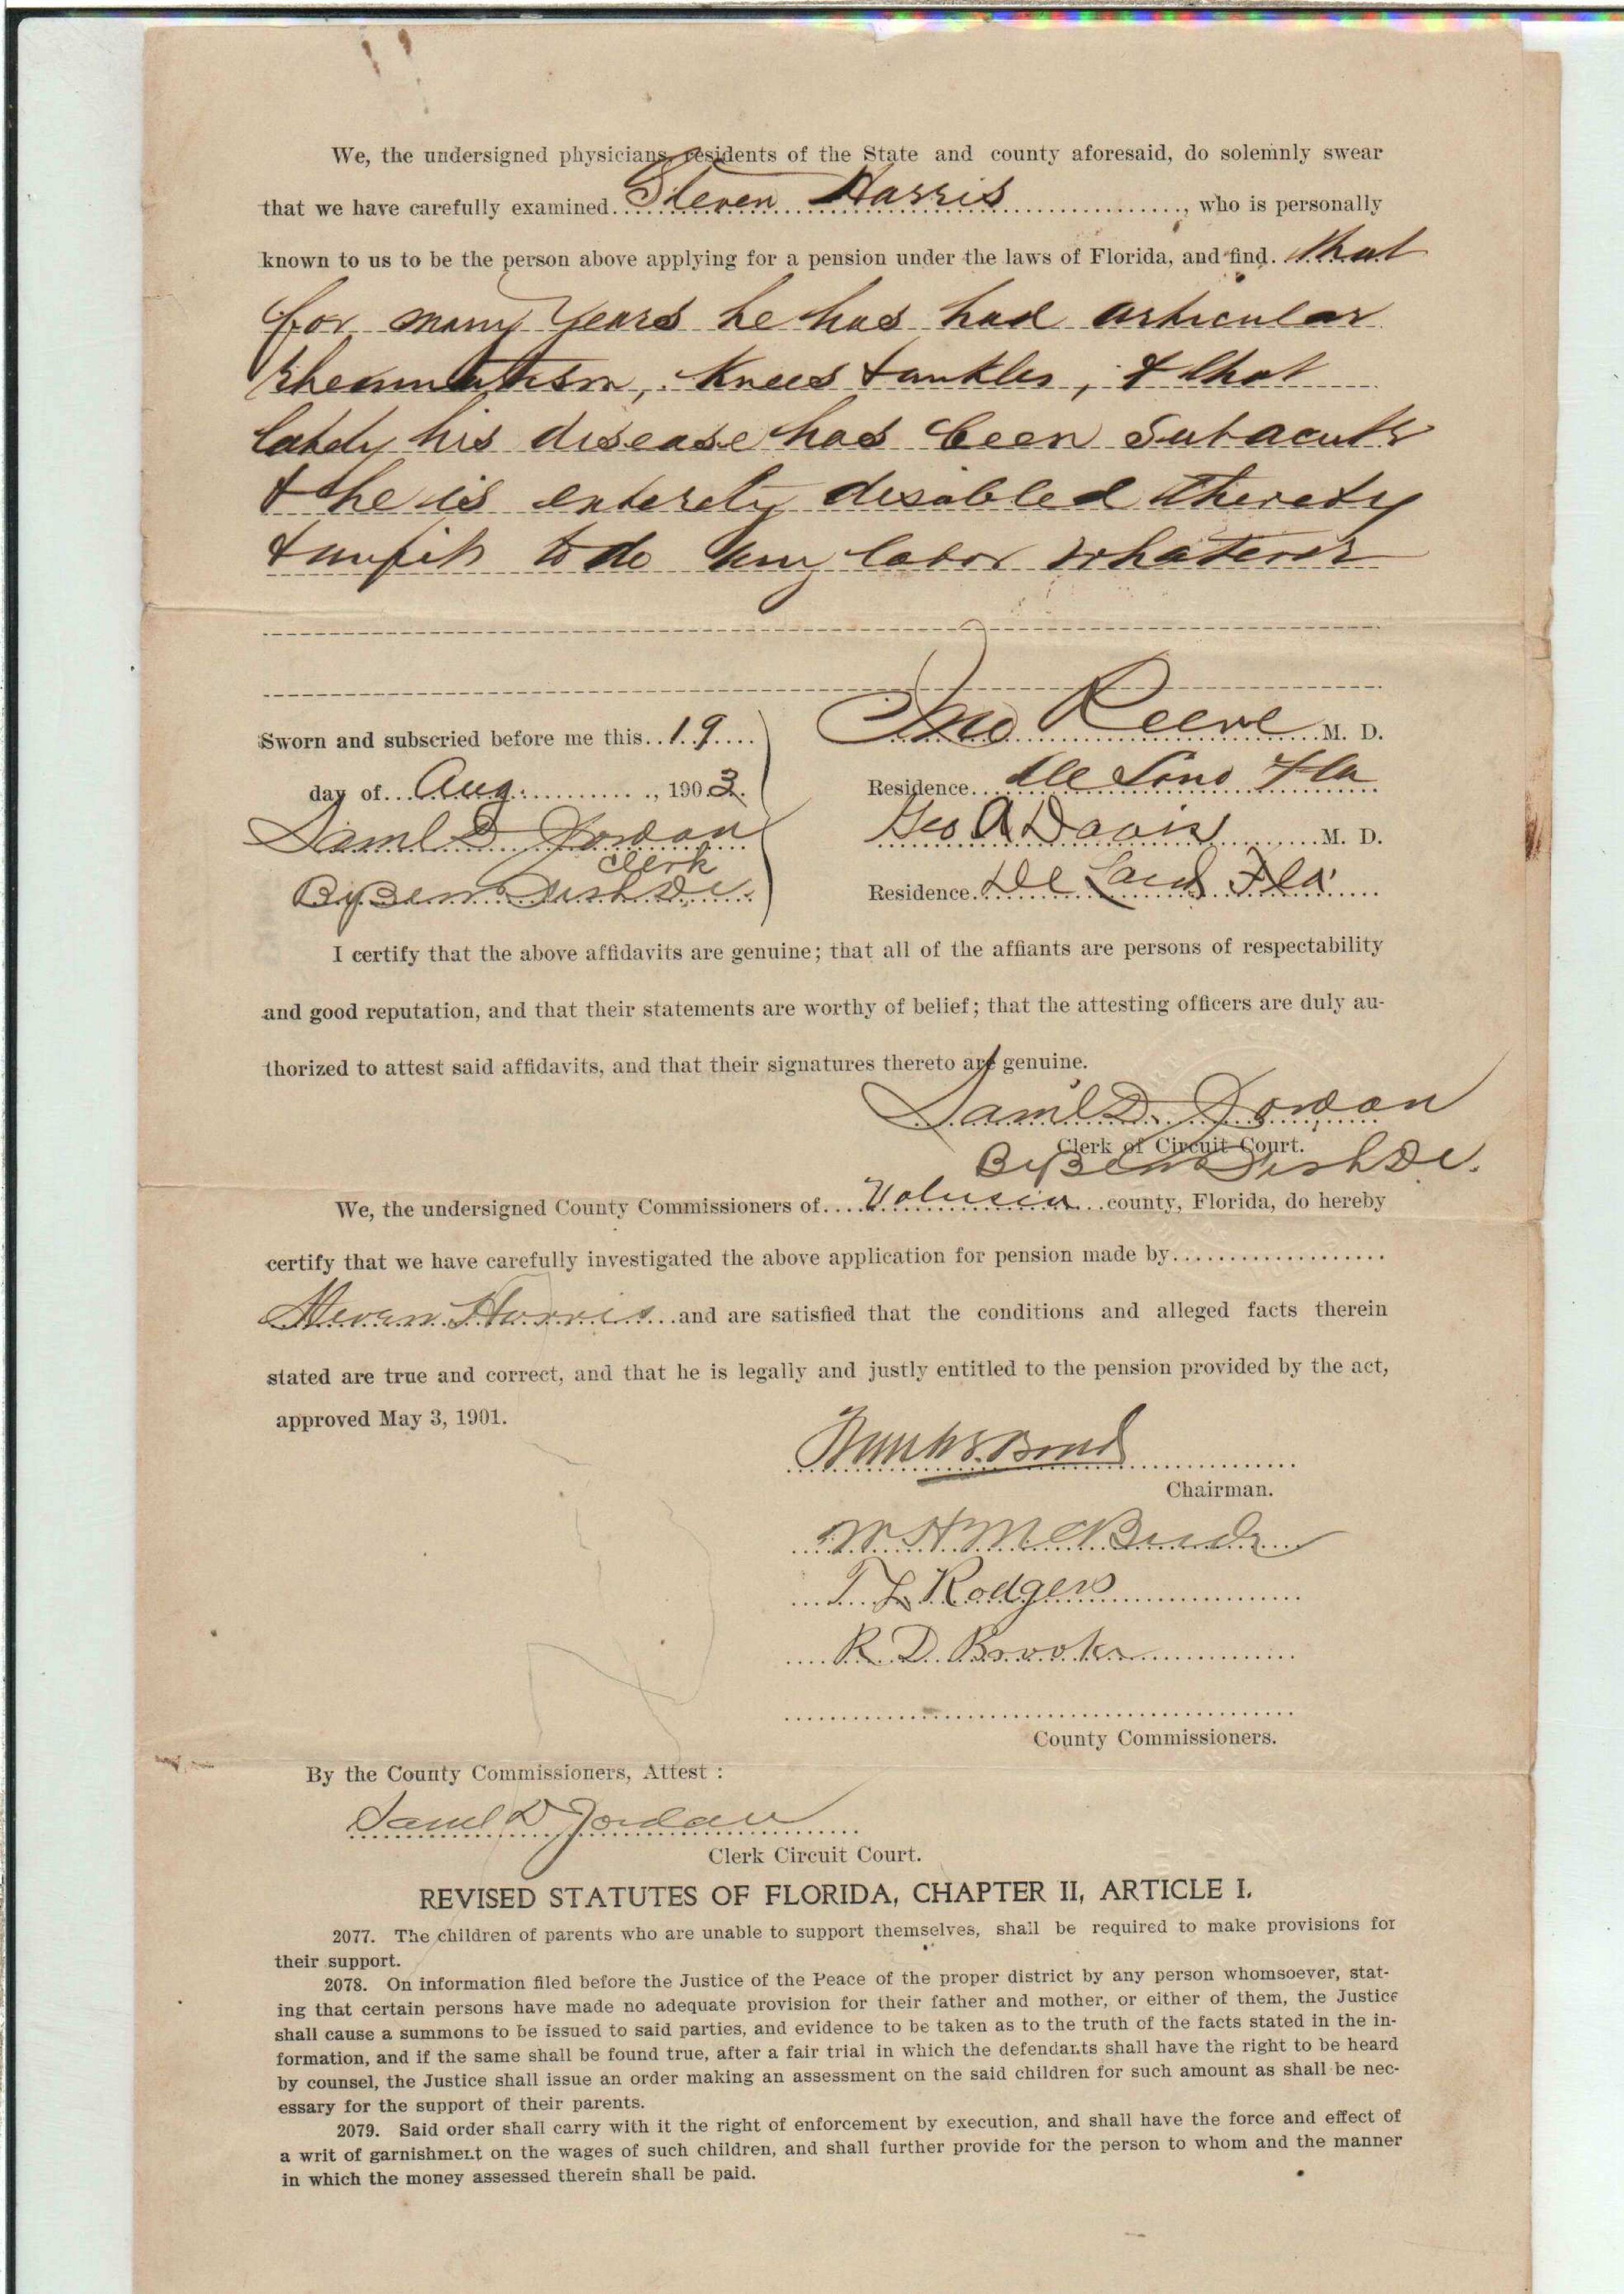 We, the undersigned physicians, residents of the State and county aforesaid, do solemnly swear
that we have carefully examined Steven Harris, who is personally
known to us to be the person above applying for a pension under the laws of Florida, and find. that
for many years he has had articular
rheumatism, knees & ankles, & that
lately his disease has been subacute
& he is entirely disabled thereby
& unfit to do any labor whatever
Sworn and subscried before me this 19
day of Aug, 1903.
Saml D Jordan
Clerk
By Ben Fish DC.
Jno Reeve M. D.
Residence De Land Fla
Geo A Davis M. D.
Residence De Land Fla.
I certify that the above affidavits are genuine; that all of the affiants are persons of respectability
and good reputation, and that their statements are worthy of belief; that the attesting officers are duly au-
thorized to attest said affidavits, and that their signatures thereto are genuine.
Saml D. Jordan
Clerk of Circuit Court.
By Ben Fish DC.
We, the undersigned County Commissioners of Volusia county, Florida, do hereby
certify that we have carefully investigated the above application for pension made by
Steven Harris and are satisfied that the conditions and alleged facts therein
stated are true and correct, and that he is legally and justly entitled to the pension provided by the act,
approved May 3, 1901.
Bond
Chairman.
W. H. McBride
T L Rodgers
R. D. Brooke
County Commissioners.
By the County Commissioners, Attest :
Saml D Jordan
Clerk Circuit Court.
REVISED STATUTES OF FLORIDA, CHAPTER II, ARTICLE I.
2077. The children of parents who are unable to support themselves, shall be required to make provisions for
their support.
2078. On information filed before the Justice of the Peace of the proper district by any person whomsoever, stat-
ing that certain persons have made no adequate provision for their father and mother, or either of them, the Justice
shall cause a summons to be issued to said parties, and evidence to be taken as to the truth of the facts stated in the in-
formation, and if the same shall be found true, after a fair trial in which the defendants shall have the right to be heard
by counsel, the Justice shall issue an order making an assessment on the said children for such amount as shall be nec-
essary for the support of their parents.
2079. Said order shall carry with it the right of enforcement by execution, and shall have the force and effect of
a writ of garnishment on the wages of such children, and shall further provide for the person to whom and the manner
in which the money assessed therein shall be paid.